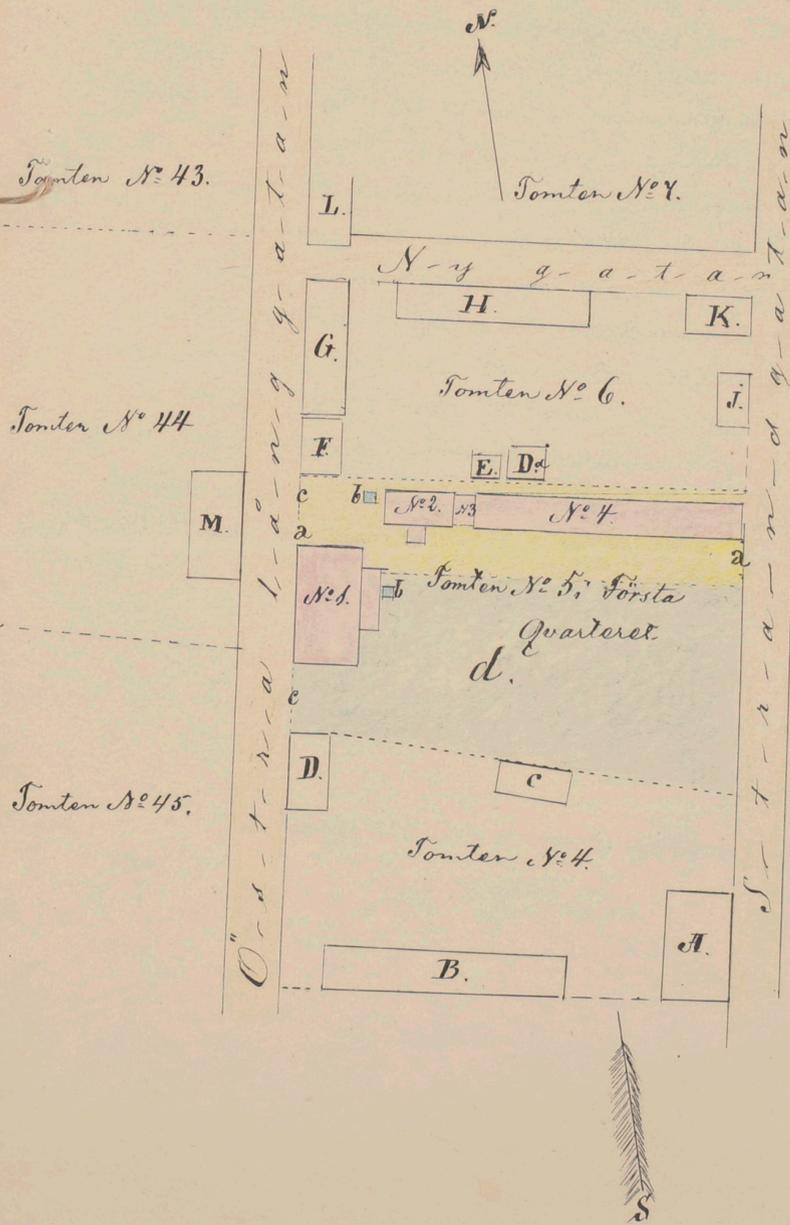 N.
Tomten No 43.
Tomten No 7.
L.
N-y g-a-t-a-n
H.
K.
G.
Tomten No 6.
J.
Tomten No 44
F.
E.
Dd
c
b
No 2.
N3
No 4.
M.
a
a
No 1.
b
Tomten No 5, i Första
Quarteret.
d.
c
D.
c
Tomten No 45.
Tomten No 4.
A.
B.
Ö-s-t-r-a l-å-n-g g-a-t-a-n
S-t-r-a-n-d g-a-t-a-n
S